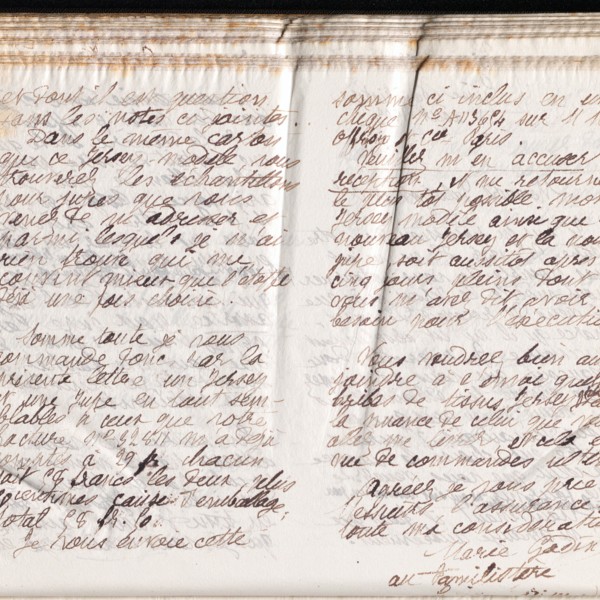 et dont il est question
dans les notes ci-jointes.
Dans le même carton
que ce Jersey modèle vous
trouverez les échantillons
pour jupe que vous
venez de m'adresser et
parmi lesquels je n'ai
rien trouvé qui me
convînt mieux que l'étoffe
déjà une fois choisie.
Somme toute je vous
commande donc par la
présente lettre un Jersey
et une jupe en tout sem-
blables à ceux que votre
facture
comptés à 29 f chacun
soit 58 francs les deux plus
centimes cause d'emballage,
total 58 f.
Je vous envoie cette
somme ci inclus en un
chèque No sur
et Cie Paris.
Veuillez m'en accuser
réception, et me retourner
le plus tôt possible mon
Jersey modèle ainsi que le
nouveau Jersey et la nou
jupe soit aussitôt après
cinq jours pleins dont
vous m'avez dit avoir
besoin pour l'exécution
Vous voudrez bien au
joindre à l'envoi
bribes de tissus Jersey
la nuance de celui que
et cela en
vue de commandes
Agréez je vous prie
l'assurance
toute ma considération
Marie Godin
au Familistère